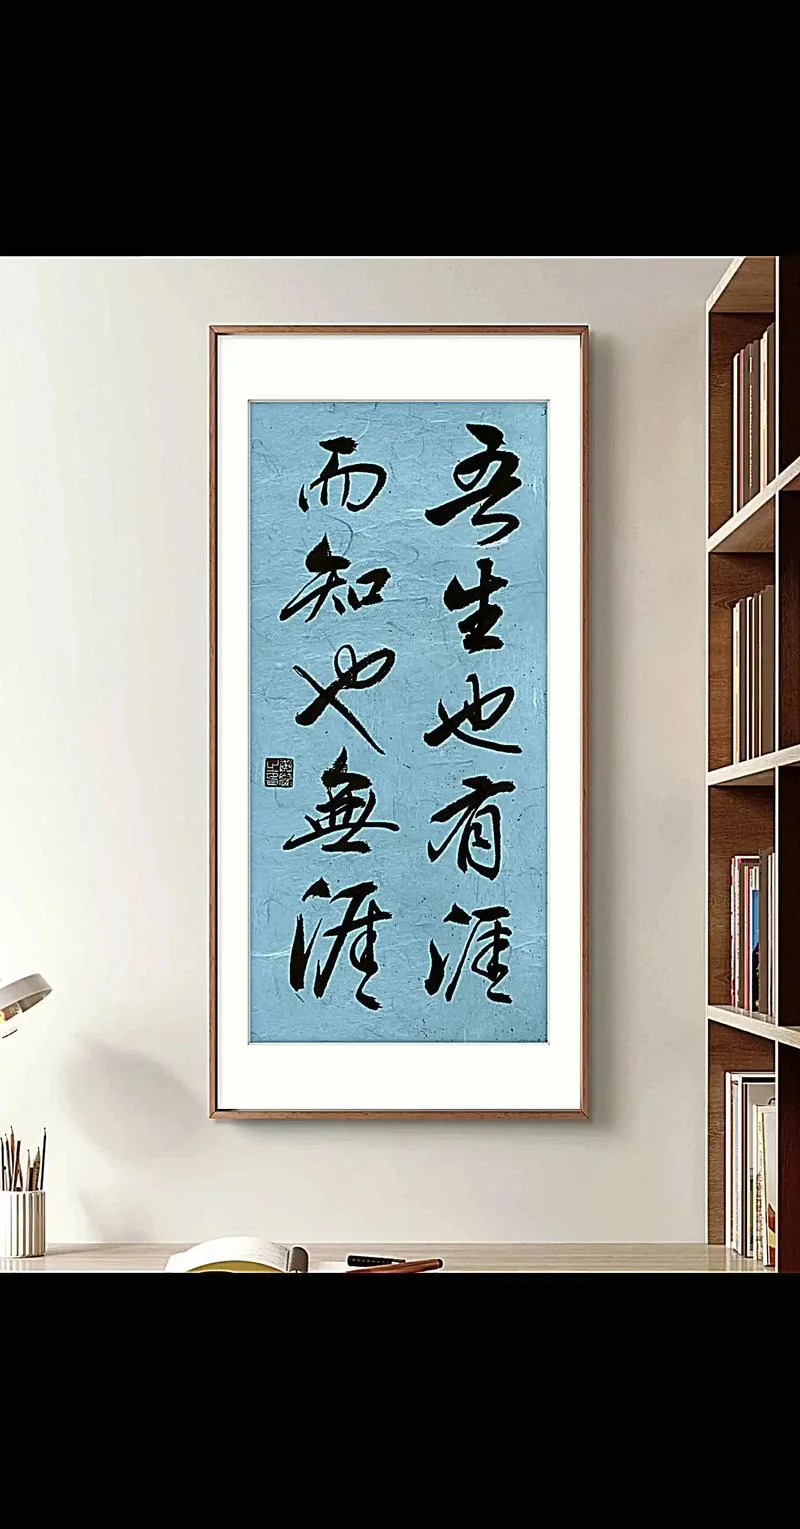 吾生也有涯
而知也無涯